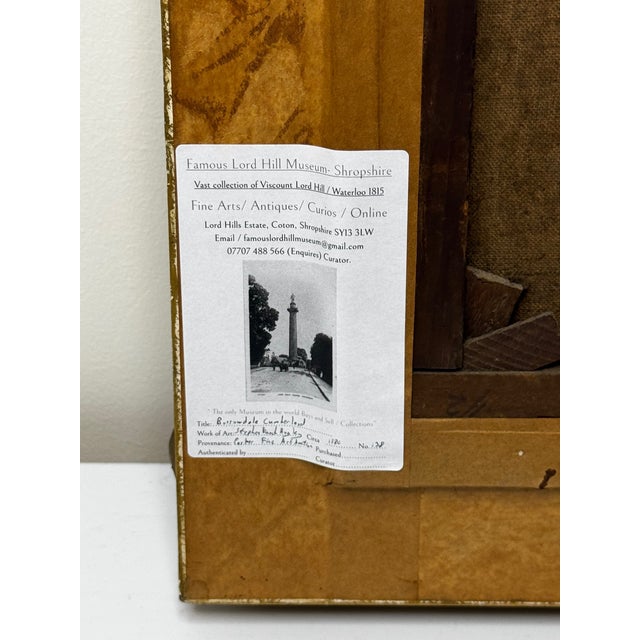 Famous Lord Hill Museum- Shropshire
Vast collection of Viscount Lord Hill / Waterloo 1815
Fine Arts/ Antiques/ Curios / Online
Lord Hills Estate, Coton, Shropshire SY13 3LW
Email / famouslordhillmuseum@gmail.com
07707 488 566 (Enquires) Curator.
"The only Museum in the world Buys and Sell / Collections"
Title: Borrowdale Cumberland
Work of Art: Stephen Circa
Provenance: Fine Art Auction Purchased No.
Authenticated by Curator